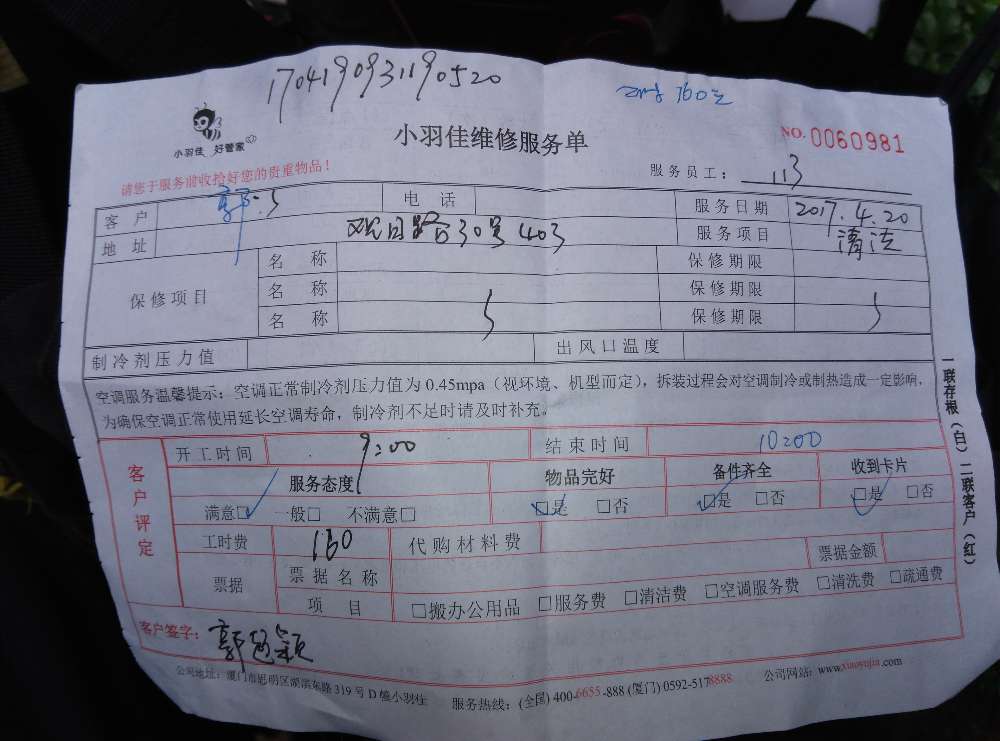 170419093119052​0
160元
小羽佳 好管家
小羽佳维修服务单
NO. 0060981
请您于服务前收拾好您的贵重物品！
服务员工： 113
客户 郭 电话 服务日期 2017.4.20
地址 观日路30号403 服务项目 清洁
保修项目 名称 保修期限
名称 保修期限
名称 保修期限
制冷剂压力值 出风口温度
空调服务温馨提示：空调正常制冷剂压力值为 0.45mpa（视环境、机型而定），拆装过程会对空调制冷或制热造成一定影响，
为确保空调正常使用延长空调寿命，制冷剂不足时请及时补充。
一联存根（白）二联客户（红）
客户评定
开工时间 9:00 结束时间 10:00
服务态度 物品完好 备件齐全 收到卡片
满意□ 一般□ 不满意□ □是 □否 □是 □否 □是 □否
工时费 160 代购材料费
票据 票据名称 票据金额
项目 □搬办公用品 □服务费 □清洁费 □空调服务费 □清洗费 □疏通费
客户签字： 郭
公司地址：厦门市思明区湖滨东路 319 号 D 幢小羽佳 服务热线：(全国) 400-6655-888 (厦门) 0592-5178888 公司网站：www.xiaoyujia.com